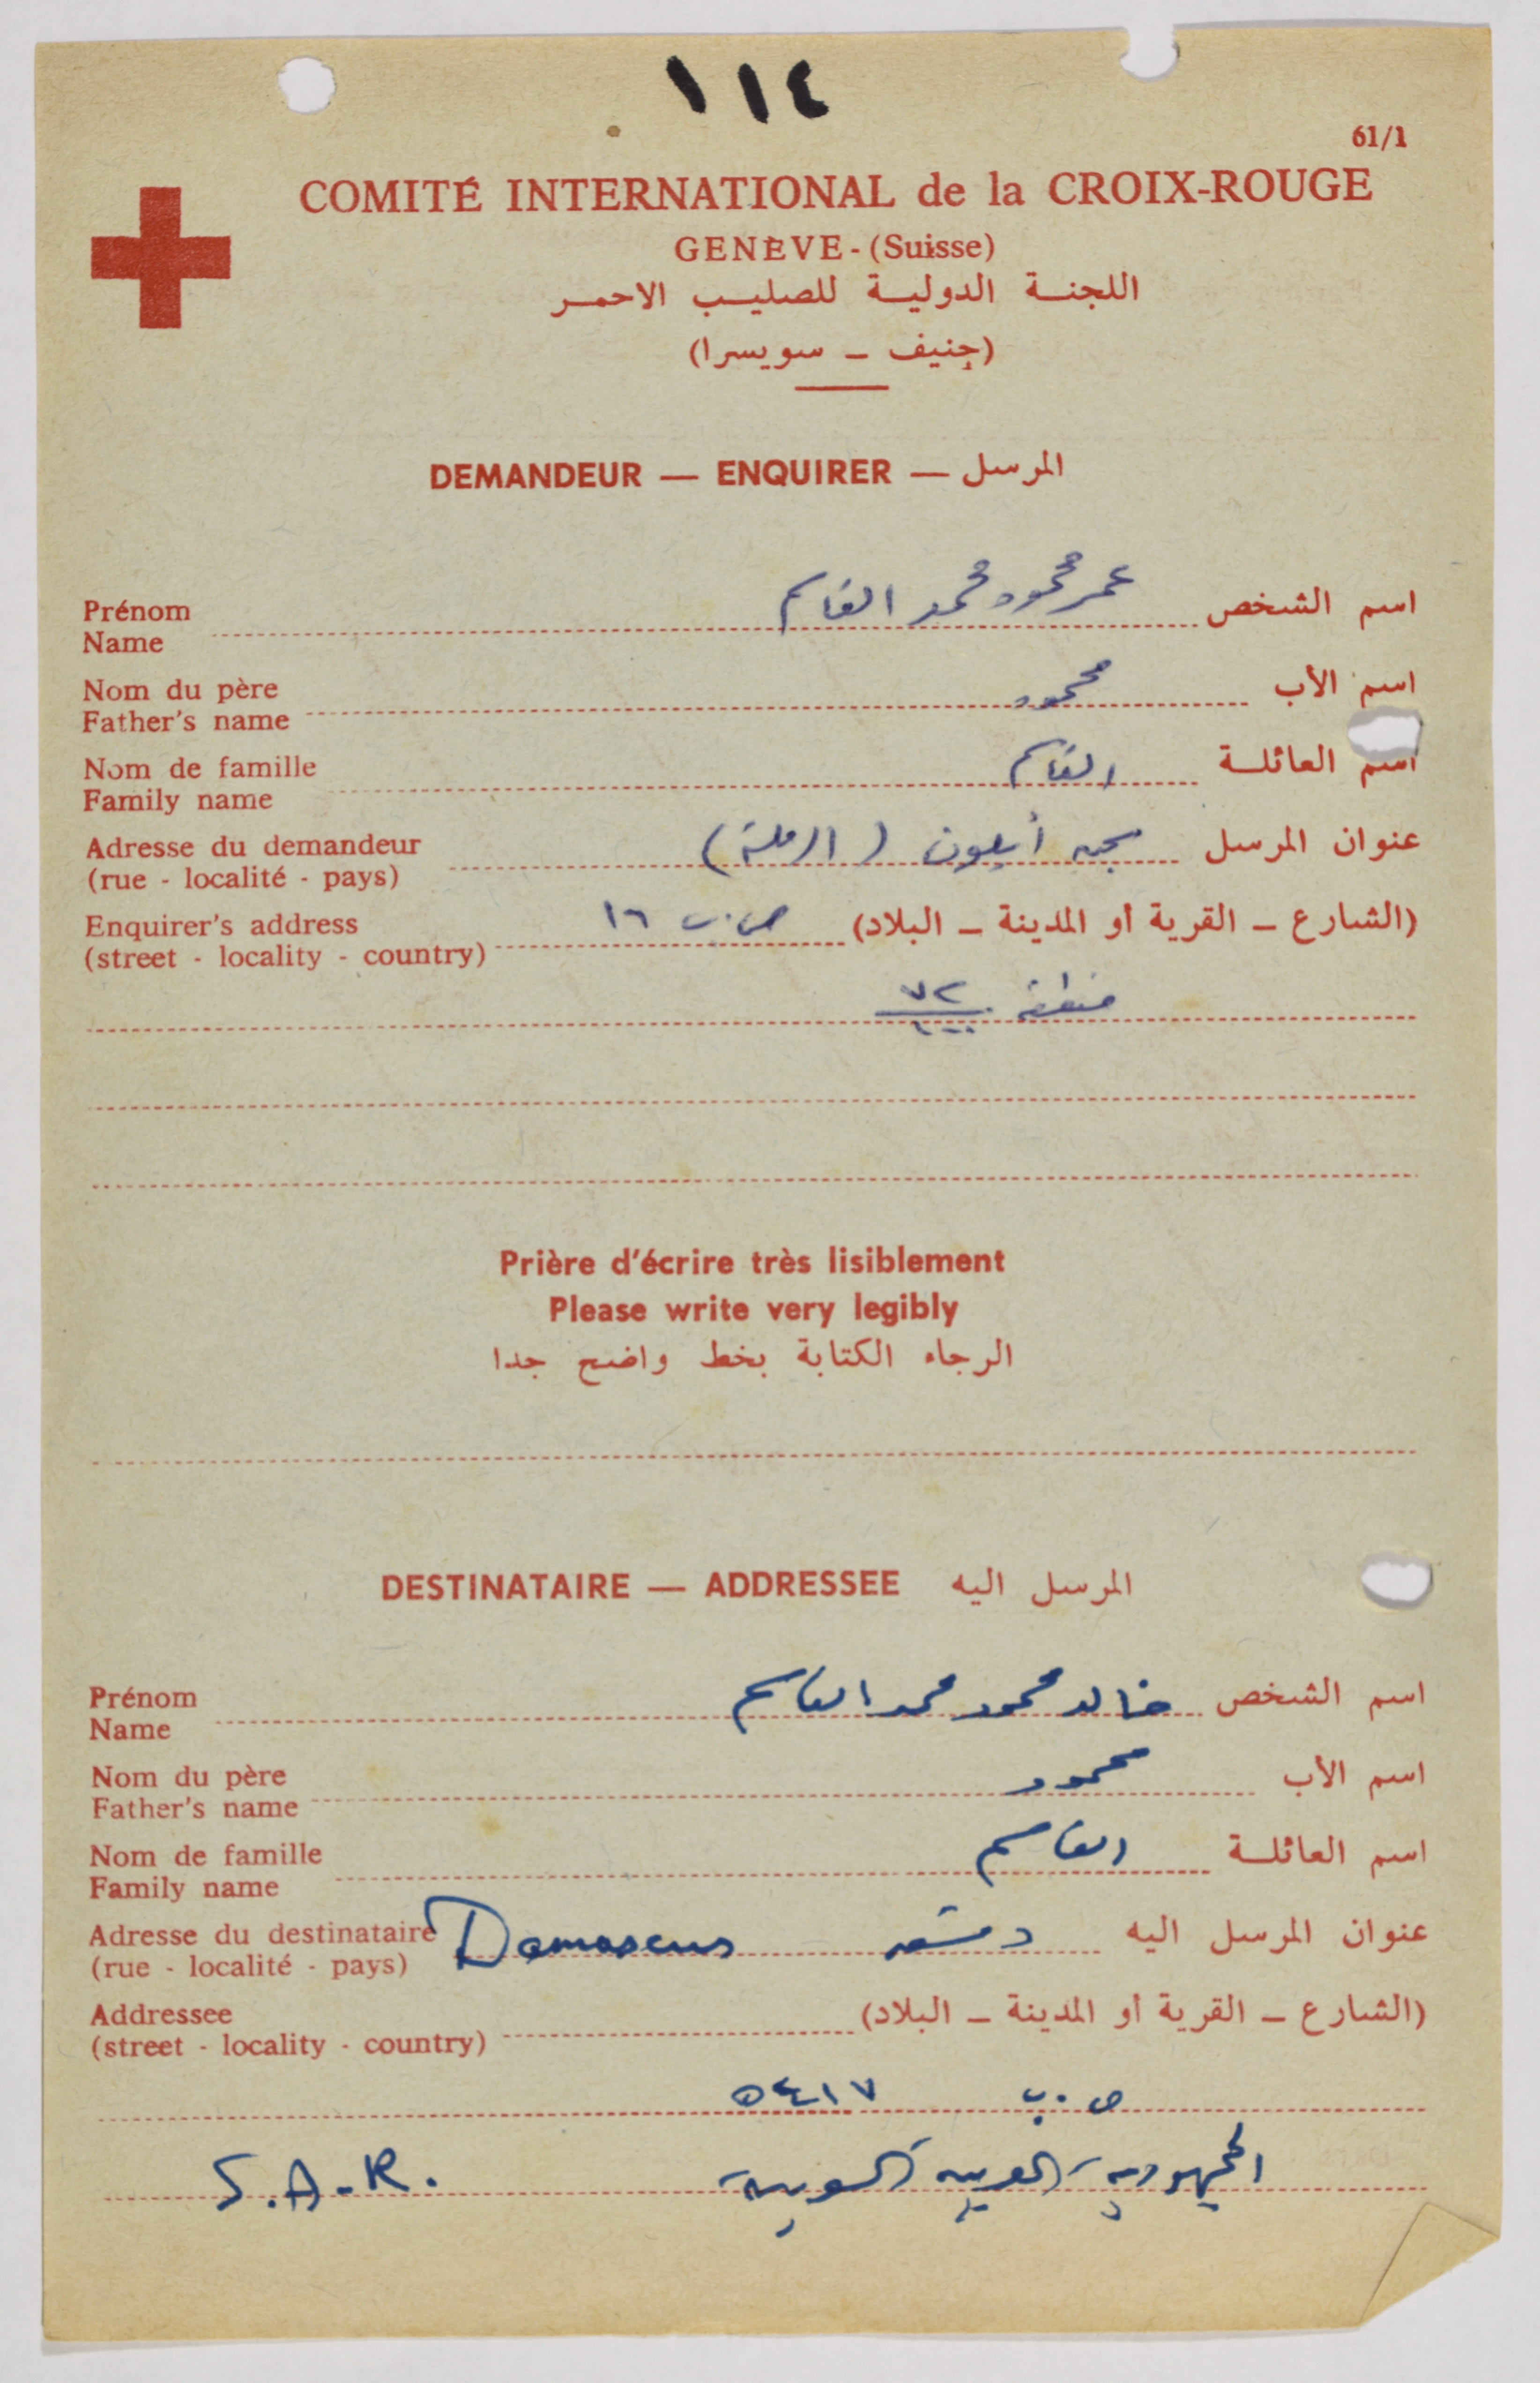 ١١٤
61/1
COMITÉ INTERNATIONAL de la CROIX-ROUGE
GENÈVE - (Suisse)
اللجنة الدولية للصليب الاحمر
(جنيف ـ سويسرا)
DEMANDEUR — ENQUIRER — المرسل
Prénom
Name
اسم الشخص عمر محمود محمد القاسم
Nom du père
Father's name
اسم الأب محمود
Nom de famille
Family name
اسم العائلة القاسم
Adresse du demandeur
(rue - localité - pays)
عنوان المرسل سجن أيلون (الرملة)
Enquirer's address
(street - locality - country)
(الشارع ـ القرية أو المدينة ـ البلاد) ص.ب ١٦
منطقة ٧٢
Prière d'écrire très lisiblement
Please write very legibly
الرجاء الكتابة بخط واضح جدا
DESTINATAIRE — ADDRESSEE المرسل اليه
Prénom
Name
اسم الشخص خالد محمود محمد القاسم
Nom du père
Father's name
اسم الأب محمود
Nom de famille
Family name
اسم العائلة القاسم
Adresse du destinataire
(rue - localité - pays)
عنوان المرسل اليه دمشق Damascus
Addressee
(street - locality - country)
(الشارع ـ القرية أو المدينة ـ البلاد)
ص.ب ٥٤١٧
الجمهورية العربية السورية S.A.R.